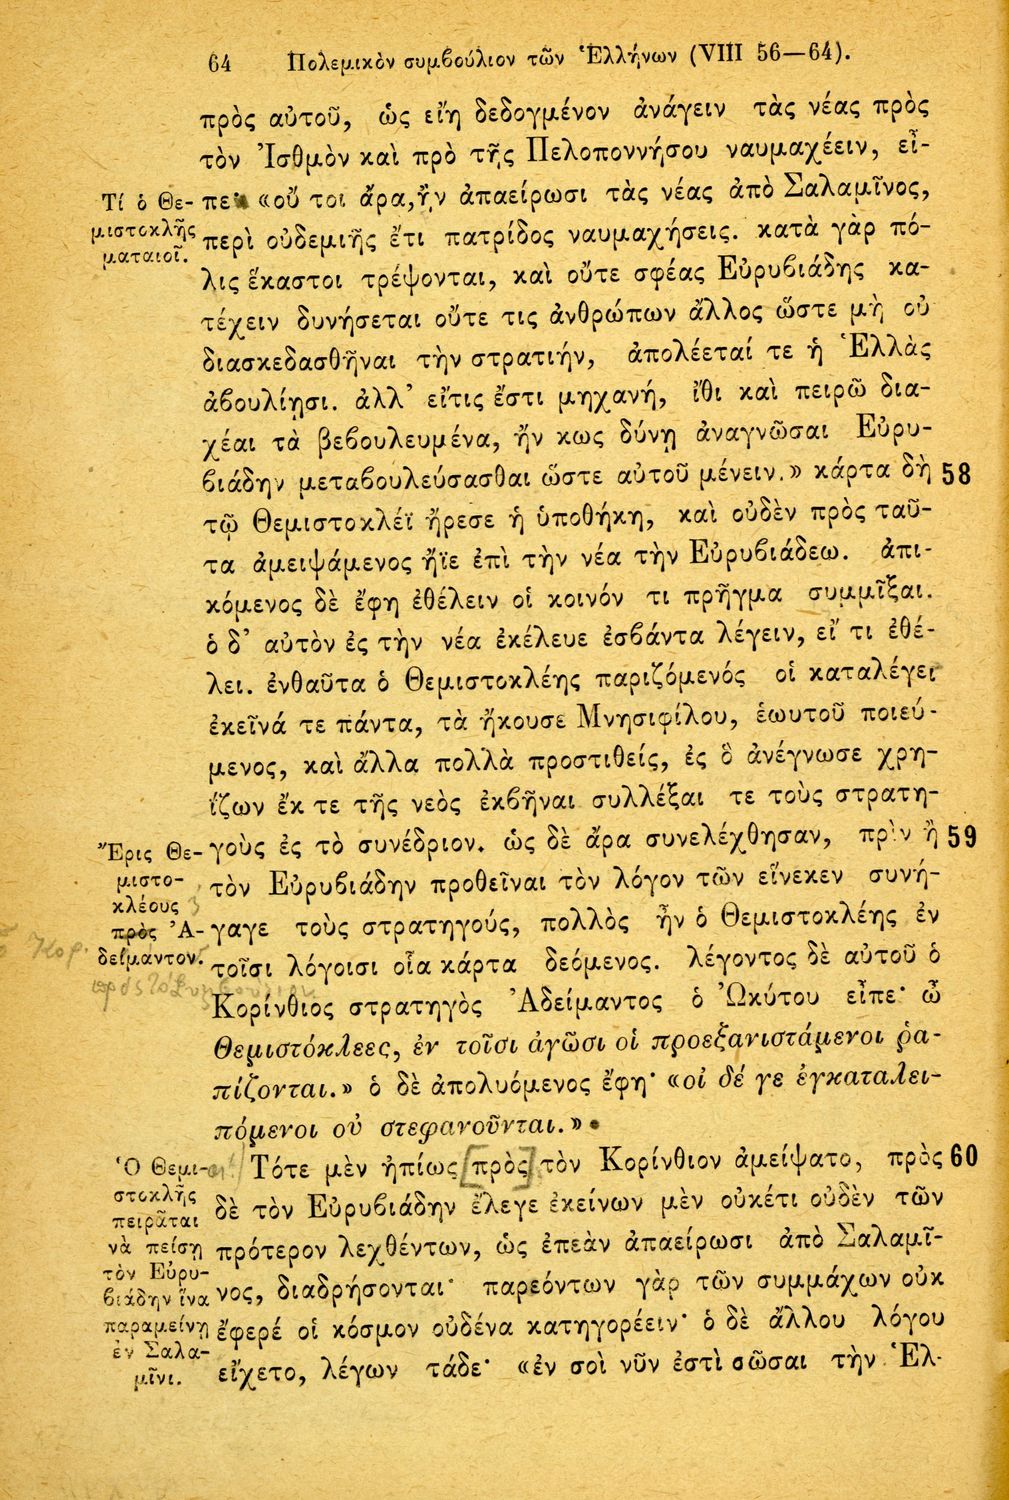 64 Πολεμικὸν συμβούλιον τῶν Ἑλλήνων (VIII 56—64).
πρὸς αὐτοῦ, ὡς εἴη δεδογμένον ἀνάγειν τὰς νέας πρὸς
τὸν Ἰσθμὸν καὶ πρὸ τῆς Πελοποννήσου ναυμαχέειν, εἶ-
πε· «οὔ τοι ἄρα, ἢν ἀπαείρωσι τὰς νέας ἀπὸ Σαλαμῖνος,
περὶ οὐδεμιῆς ἔτι πατρίδος ναυμαχήσεις. κατὰ γὰρ πό-
λις ἕκαστοι τρέψονται, καὶ οὔτε σφέας Εὐρυβιάδης κα-
τέχειν δυνήσεται οὔτε τις ἀνθρώπων ἄλλος ὥστε μὴ οὐ
διασκεδασθῆναι τὴν στρατιήν, ἀπολέεταί τε ἡ Ἑλλὰς
ἀβουλίῃσι. ἀλλ' εἴτις ἔστι μηχανή, ἴθι καὶ πειρῶ δια-
χέαι τὰ βεβουλευμένα, ἤν κως δύνῃ ἀναγνῶσαι Εὐρυ-
βιάδην μεταβουλεύσασθαι ὥστε αὐτοῦ μένειν.» κάρτα δὴ 58
τῷ Θεμιστοκλέϊ ἤρεσε ἡ ὑποθήκη, καὶ οὐδὲν πρὸς ταῦ-
τα ἀμειψάμενος ἤϊε ἐπὶ τὴν νέα τὴν Εὐρυβιάδεω. ἀπι-
κόμενος δὲ ἔφη ἐθέλειν οἱ κοινόν τι πρῆγμα συμμῖξαι.
ὁ δ' αὐτὸν ἐς τὴν νέα ἐκέλευε ἐσβάντα λέγειν, εἴ τι ἐθέ-
λει. ἐνθαῦτα ὁ Θεμιστοκλέης παριζόμενός οἱ καταλέγει
ἐκεῖνά τε πάντα, τὰ ἤκουσε Μνησιφίλου, ἑωυτοῦ ποιεύ-
μενος, καὶ ἄλλα πολλὰ προστιθείς, ἐς ὃ ἀνέγνωσε χρη-
ΐζων ἔκ τε τῆς νεὸς ἐκβῆναι συλλέξαι τε τοὺς στρατη-
γοὺς ἐς τὸ συνέδριον. ὡς δὲ ἄρα συνελέχθησαν, πρὶν ἢ 59
τὸν Εὐρυβιάδην προθεῖναι τὸν λόγον τῶν εἵνεκεν συνή-
γαγε τοὺς στρατηγούς, πολλὸς ἦν ὁ Θεμιστοκλέης ἐν
τοῖσι λόγοισι οἷα κάρτα δεόμενος. λέγοντος δὲ αὐτοῦ ὁ
Κορίνθιος στρατηγὸς Ἀδείμαντος ὁ Ὠκύτου εἶπε· ὦ
Θεμιστόκλεες, ἐν τοῖσι ἀγῶσι οἱ προεξανιστάμενοι ῥα-
πίζονται.» ὁ δὲ ἀπολυόμενος ἔφη· «οἱ δέ γε ἐγκαταλει-
πόμενοι οὐ στεφανοῦνται.»
Τότε μὲν ἠπίως [πρὸς] τὸν Κορίνθιον ἀμείψατο, πρὸς 60
δὲ τὸν Εὐρυβιάδην ἔλεγε ἐκείνων μὲν οὐκέτι οὐδὲν τῶν
πρότερον λεχθέντων, ὡς ἐπεὰν ἀπαείρωσι ἀπὸ Σαλαμῖ-
νος, διαδρήσονται· παρεόντων γὰρ τῶν συμμάχων οὐκ
ἔφερέ οἱ κόσμον οὐδένα κατηγορέειν· ὁ δὲ ἄλλου λόγου
εἴχετο, λέγων τάδε· «ἐν σοὶ νῦν ἐστὶ σῶσαι τὴν Ἑλ-
Τί ὁ Θε-
μιστοκλῆς
ματαιοῖ.
Ἔρις Θε-
μιστο-
κλέους
πρὸς Ἀ-
δείμαντον.
Ὁ Θεμι-
στοκλῆς
πειρᾶται
νὰ πείσῃ
τὸν Εὐρυ-
βιάδην ἵνα
παραμείνῃ
ἐν Σαλα-
μῖνι.